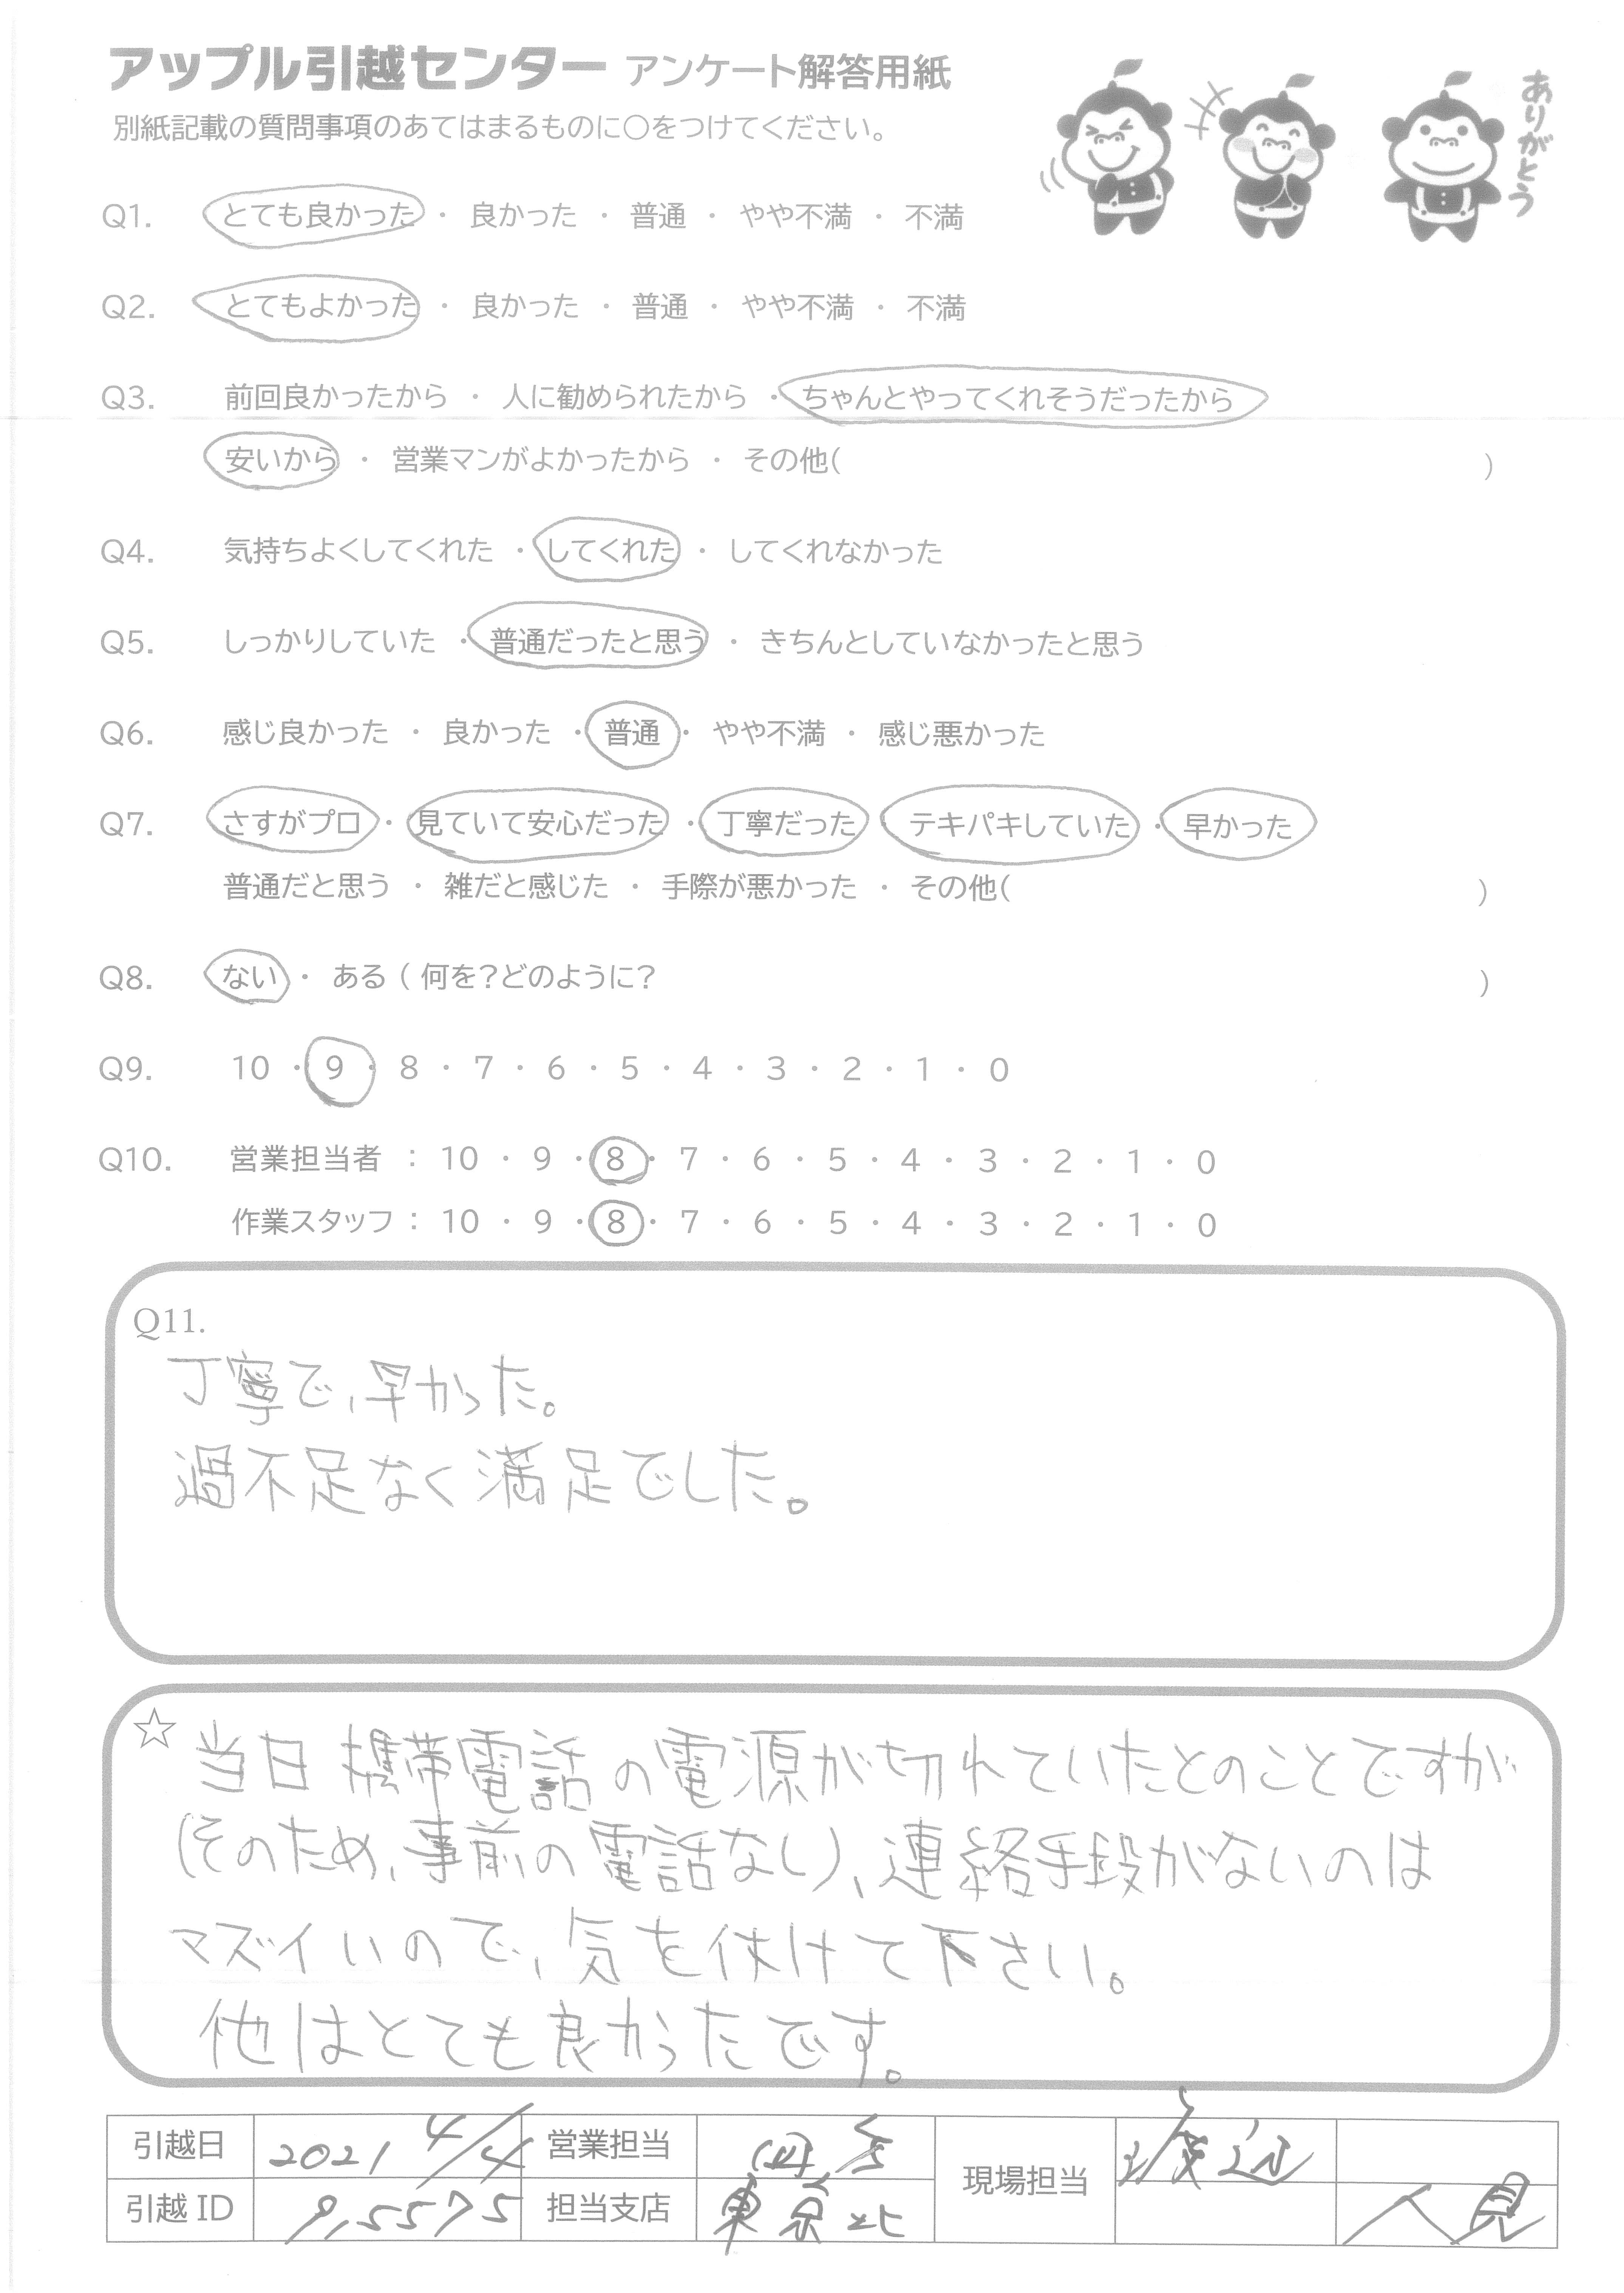 アップル引越センター アンケート解答用紙
別紙記載の質問事項のあてはまるものに○をつけてください。
ありがとう
Q1. とても良かった ・ 良かった ・ 普通 ・ やや不満 ・ 不満
Q2. とてもよかった ・ 良かった ・ 普通 ・ やや不満 ・ 不満
Q3. 前回良かったから ・ 人に勧められたから ・ ちゃんとやってくれそうだったから
安いから ・ 営業マンがよかったから ・ その他( )
Q4. 気持ちよくしてくれた ・ してくれた ・ してくれなかった
Q5. しっかりしていた ・ 普通だったと思う ・ きちんとしていなかったと思う
Q6. 感じ良かった ・ 良かった ・ 普通 ・ やや不満 ・ 感じ悪かった
Q7. さすがプロ ・ 見ていて安心だった ・ 丁寧だった テキパキしていた ・ 早かった
普通だと思う ・ 雑だと感じた ・ 手際が悪かった ・ その他( )
Q8. ない ・ ある ( 何を?どのように? )
Q9. 10 ・ 9 ・ 8 ・ 7 ・ 6 ・ 5 ・ 4 ・ 3 ・ 2 ・ 1 ・ 0
Q10. 営業担当者 : 10 ・ 9 ・ 8 ・ 7 ・ 6 ・ 5 ・ 4 ・ 3 ・ 2 ・ 1 ・ 0
作業スタッフ : 10 ・ 9 ・ 8 ・ 7 ・ 6 ・ 5 ・ 4 ・ 3 ・ 2 ・ 1 ・ 0
Q11.
丁寧で、早かった。
過不足なく満足でした。
☆ 当日携帯電話の電源が切れていたとのことですが
(そのため、事前の電話なし)、連絡手段がないのは
マズイいので、気を付けて下さい。
他はとても良かったです。
引越日 2021 4/4 営業担当 現場担当 渡辺
引越ID 担当支店 東京北 人見